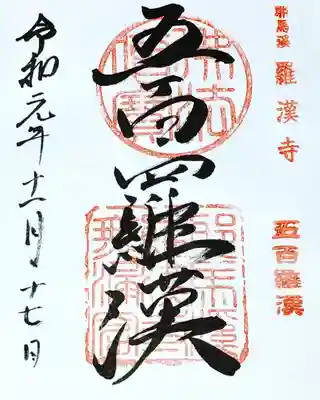 耶馬溪
羅漢寺
五百羅漢
五百羅漢
令和元年十一月十七日